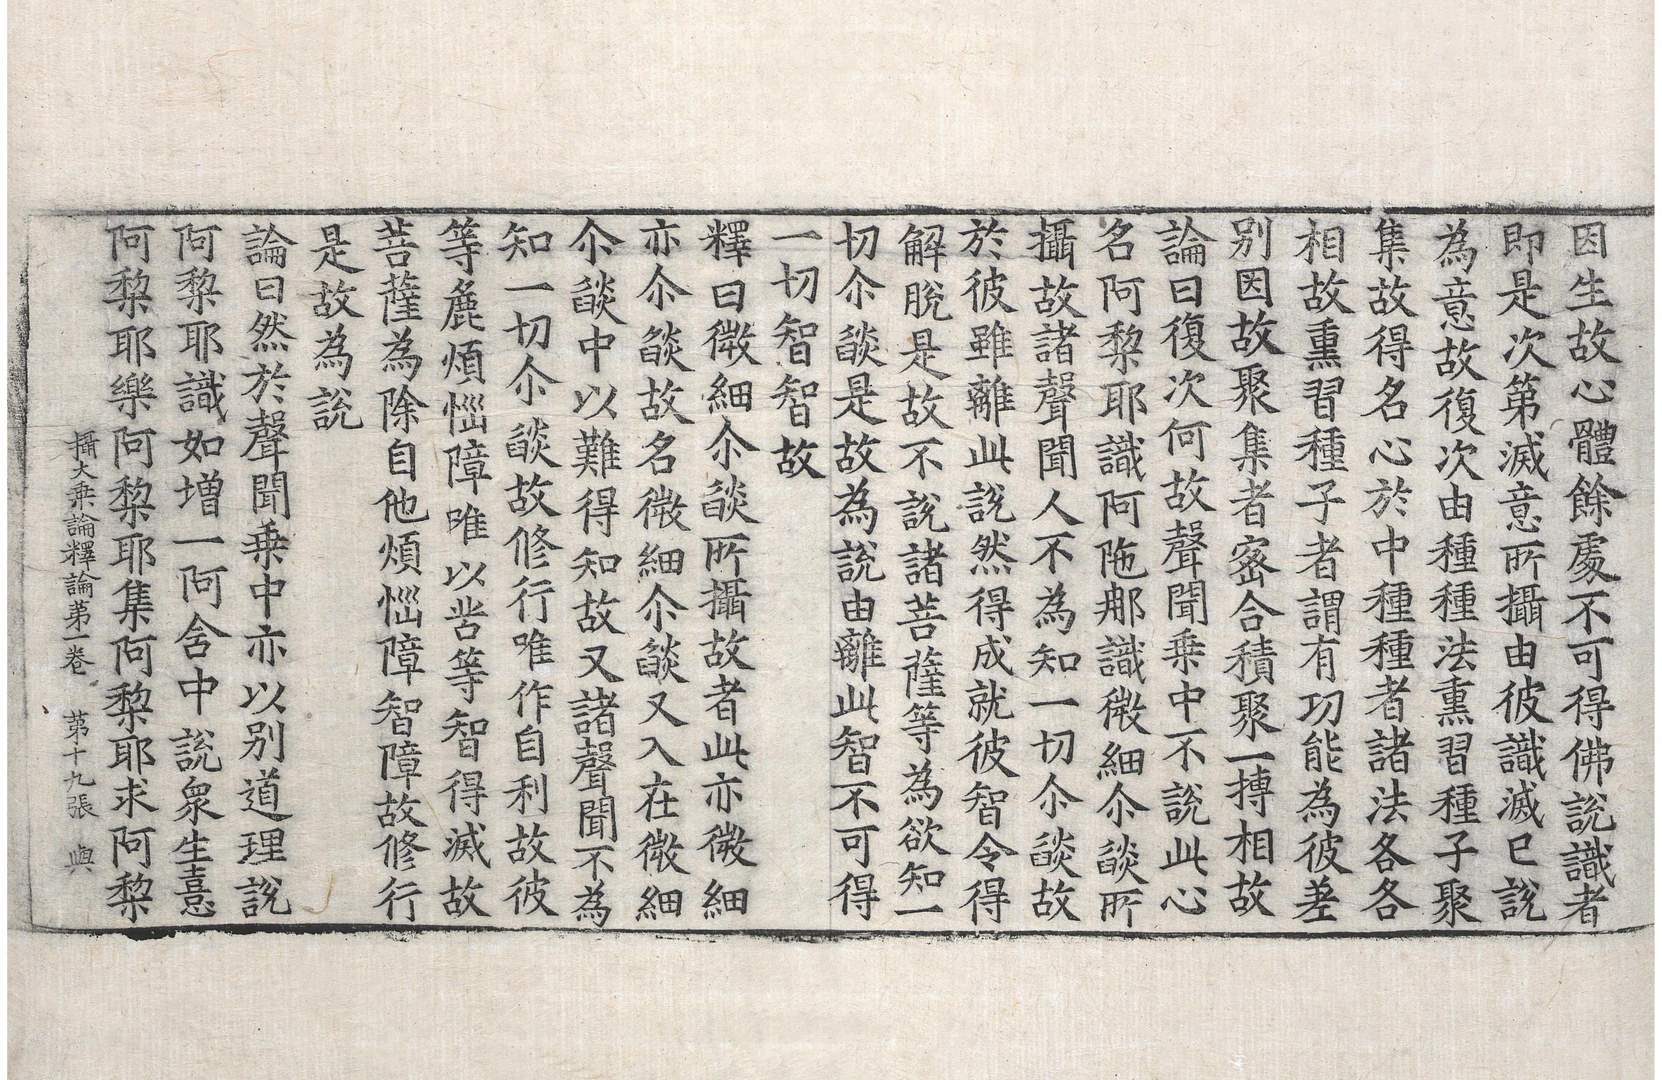 因生故心體餘處不可得佛說識者
即是次第滅意所攝由彼識滅已說
為意故復次由種種法熏習種子聚
集故得名心於中種種者諸法各各
相故熏習種子者謂有功能為彼差
別因故聚集者密合積聚一摶相故
論曰復次何故聲聞乗中不說此心
名阿黎耶識阿陁那識微細尒𦦨所
攝故諸聲聞人不為知一切尒𦦨故
於彼雖離此說然得成就彼智令得
解脫是故不說諸菩薩等為欲知一
切尒𦦨是故為說由離此智不可得
一切智智故
釋曰微細尒𦦨所攝故者此亦微細
亦尒𦦨故名微細尒𦦨又入在微細
尒𦦨中以難得知故又諸聲聞不為
知一切尒𦦨故修行唯作自利故彼
等麁煩惱障唯以苦等智得滅故
菩薩為除自他煩惱障智障故修行
是故為說
論曰然於聲聞乗中亦以別道理說
阿黎耶識如增一阿含中說衆生憙
阿黎耶樂阿黎耶集阿黎耶求阿黎
攝大乗論釋論第一卷 第十九張 與